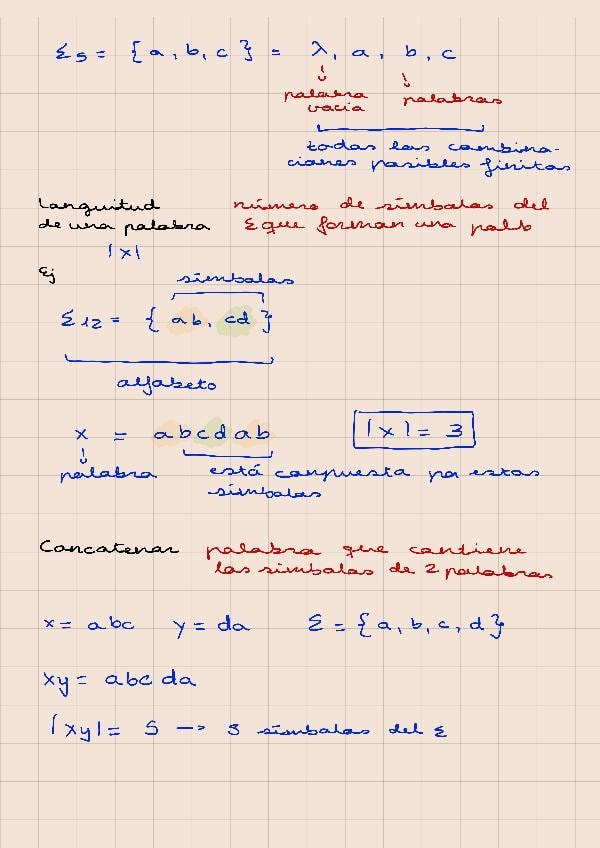 Σ5 = {a, b, c} = λ, a, b, c
↓ ↓
palabra palabras
vacía
todas las combina-
ciones posibles finitas
Longuitud número de símbolos del
de una palabra Σ que forman una palb
|x|
Ej símbolos
Σ12 = {ab, cd}
alfabeto
x = abcdab |x| = 3
↓
palabra está conpuesta por estos
símbolos
Concatenar palabra que contiene
los símbolos de 2 palabras
x = abc y = da Σ = {a, b, c, d}
xy = abcda
|xy| = 5 → 5 símbolos del Σ